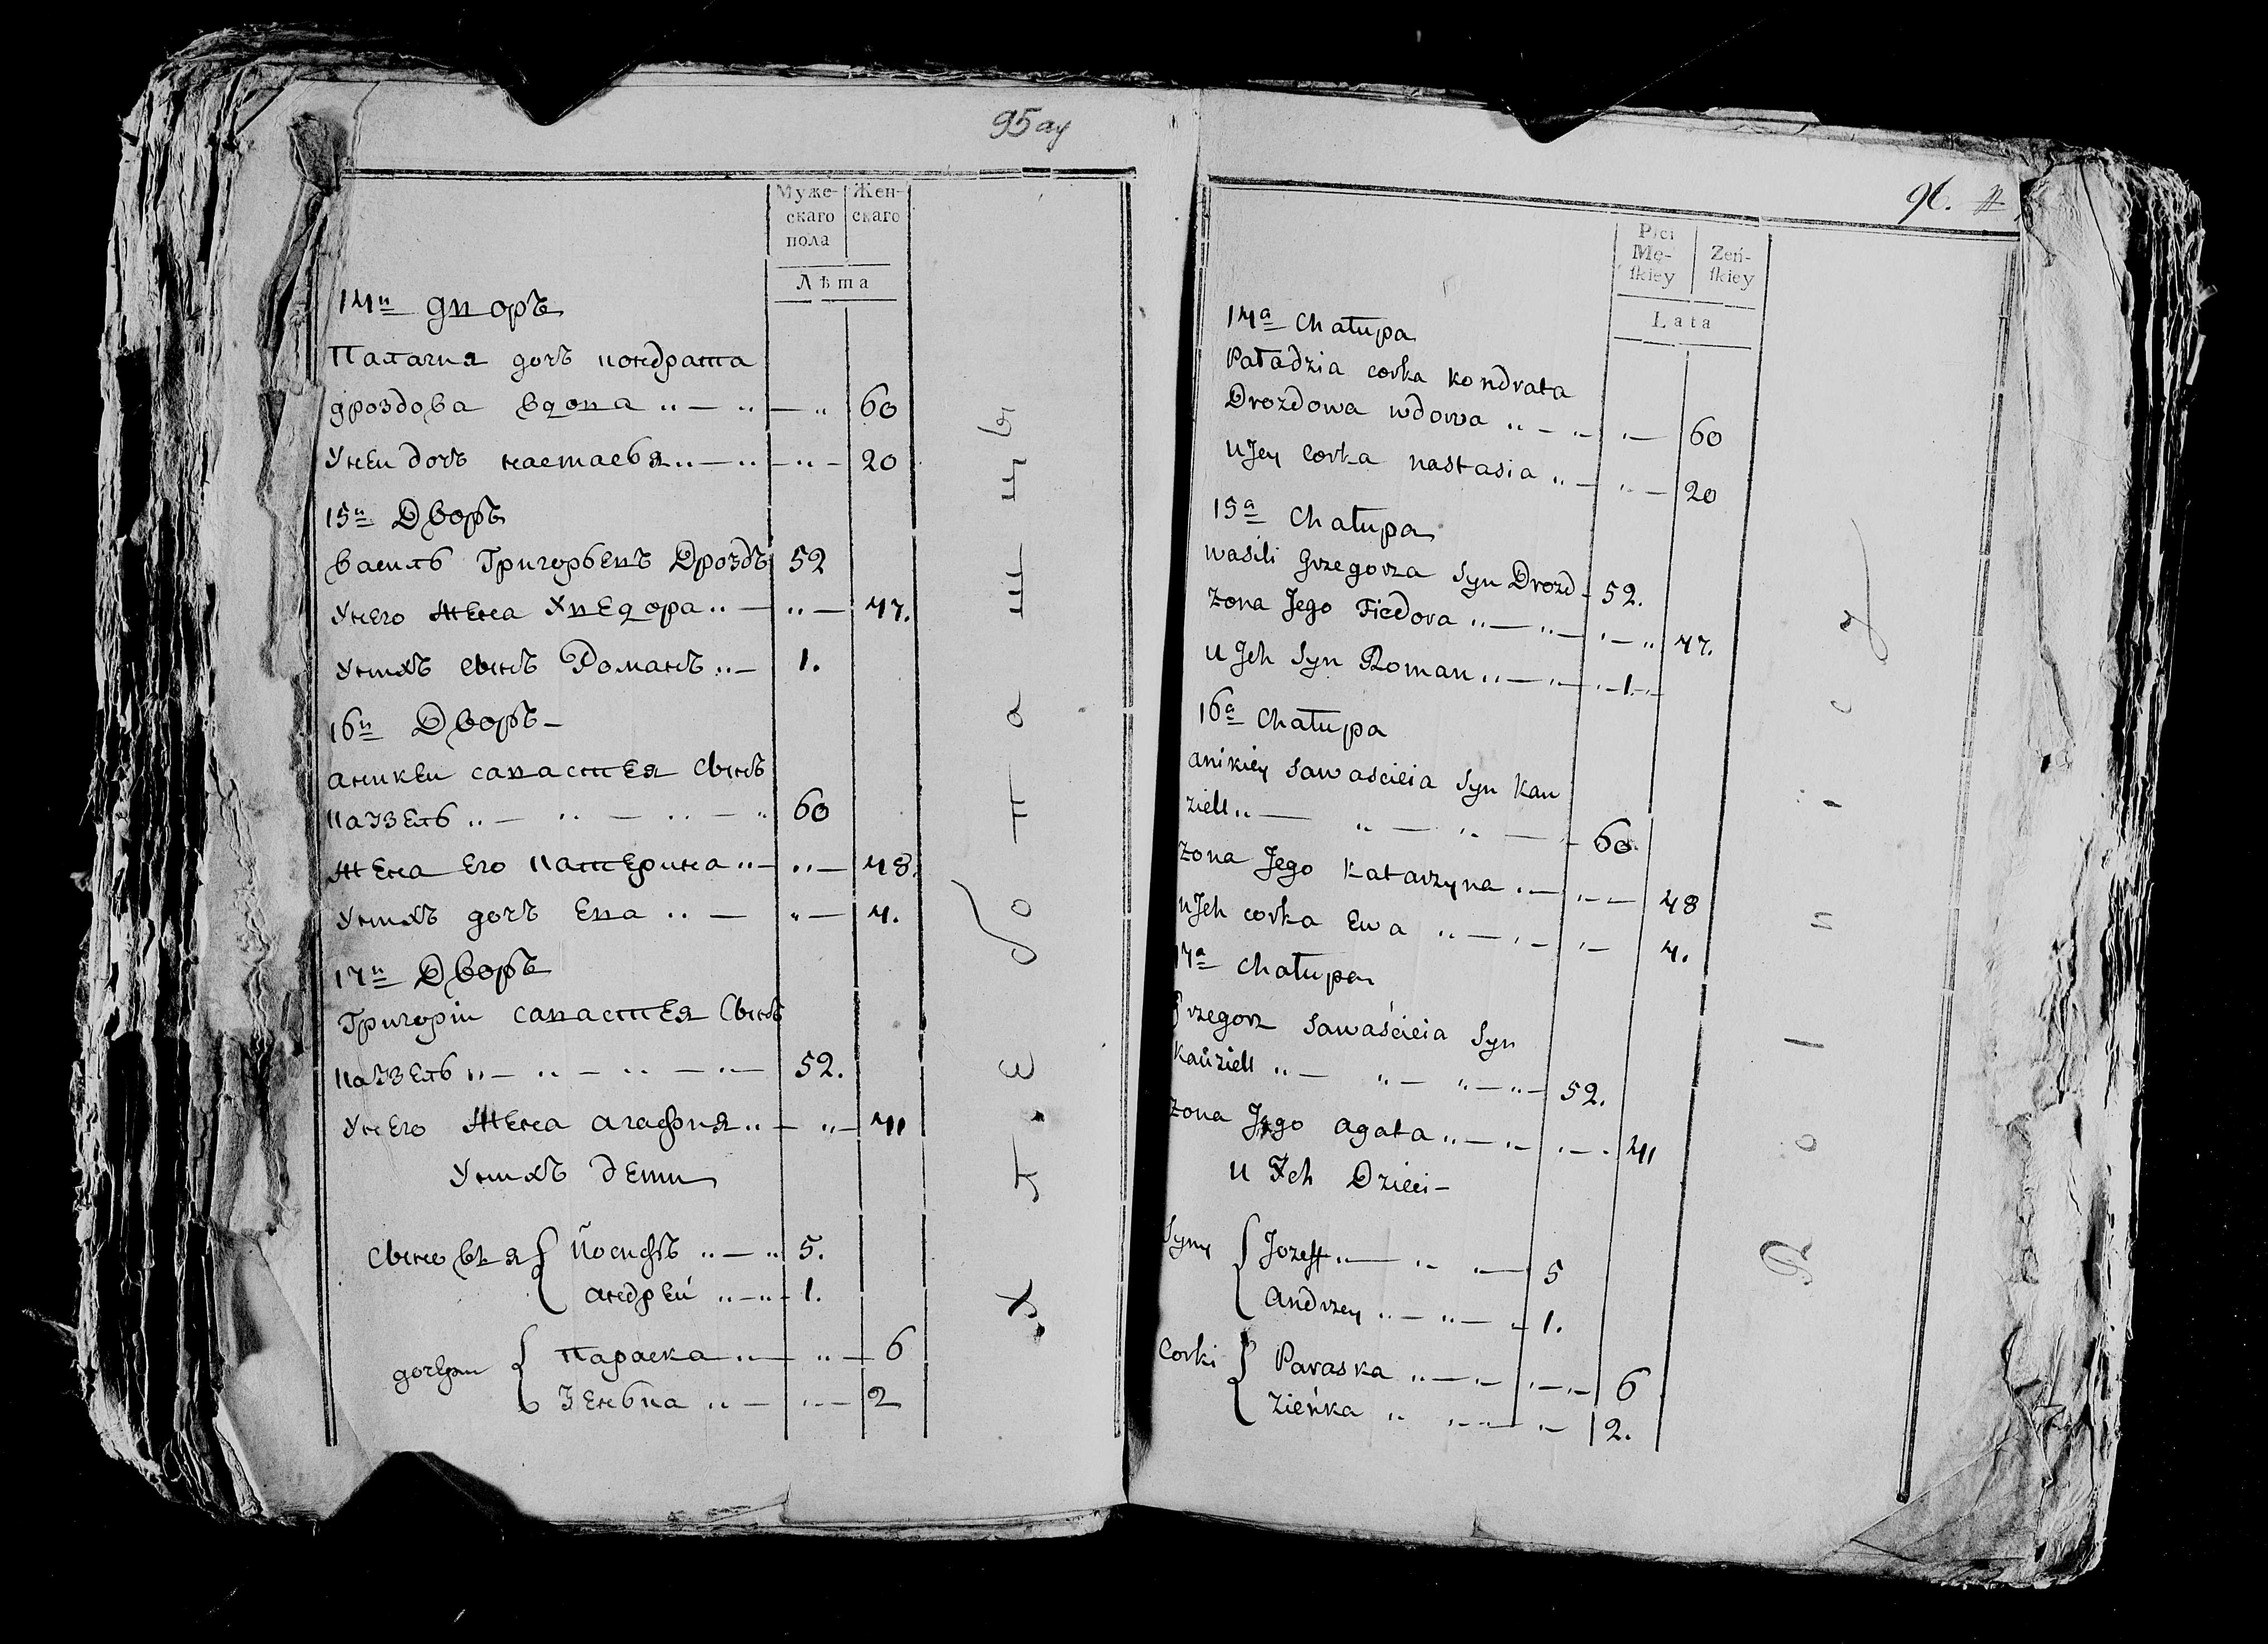 95 ау
Муже-
скаго
пола
Жен-
скаго
Лѣта
14й дворъ
Палагия дочъ кондрата
дроздова вдова 60
Унеи дочъ настасья 20
15й Дворъ
Василь Григорьевъ Дроздъ 52
Унего жена Хведора 47.
Унихъ сынъ Романъ 1.
16й Дворъ
аникеи савастея сынъ
каузель 60
жена его катерина 48.
Унихъ дочъ Ева 4.
17й Дворъ
Григоріи савастея сынъ
каузель 52.
Унего жена агафия 41
Унихъ дети
сыновья
Иосифъ 5.
андреи 1.
дочери
Параска 6
Зенька 2
Хлебопашцы
96.
Płci
Mę-
ſkiey
Żeń-
ſkiey
Lata
14a Chałupa
Paładzia corka Kondrata
Drozdowa wdowa 60
u Jey corka nastasia 20
15a Chałupa
wasili Grzegorza Syn Drozd 52.
zona Jego Fiedora 47.
u Jch Syn Roman 1.
16a Chałupa
anikiey Sawaścieia Syn Kau
ziell 60.
zona Jego Katarzyna 48
u Jch corka Ewa 4.
17a Chałupa
Grzegorz Sawaścieia Syn
Kauziell 52.
zona Jego agata 41
u Jch Dzieci
Syny
Jozeff 5
andrzey 1.
Corki
Paraska 6
Zieńka 2.
Rolnicy